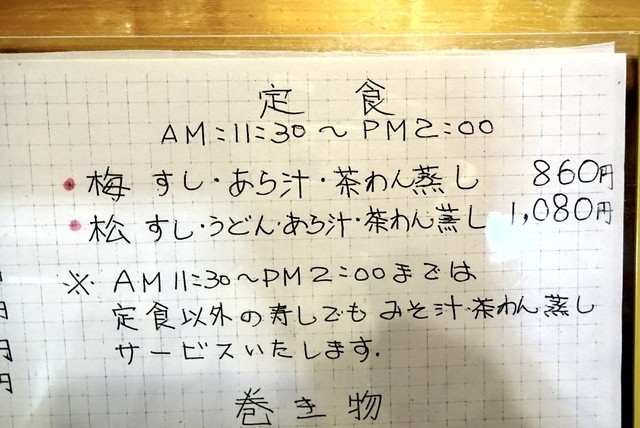 定 食
AM:11:30~PM2:00
梅 すし・あら汁・茶わん蒸し 860円
松 すし・うどん・あら汁・茶わん蒸し 1,080円
※ AM11:30~PM2:00までは
定食以外の寿しでも みそ汁・茶わん蒸し
サービスいたします.
円
円
巻き物